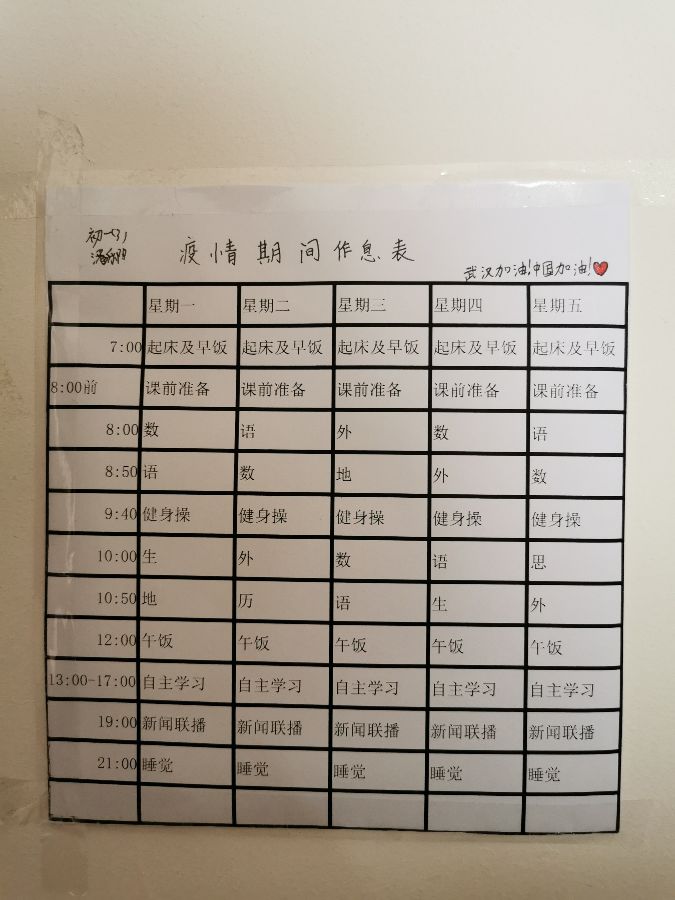 疫情期间作息表
武汉加油!中国加油!
星期一 星期二 星期三 星期四 星期五
7:00 起床及早饭 起床及早饭 起床及早饭 起床及早饭 起床及早饭
8:00前 课前准备 课前准备 课前准备 课前准备 课前准备
8:00 数 语 外 数 语
8:50 语 数 地 外 数
9:40 健身操 健身操 健身操 健身操 健身操
10:00 生 外 数 语 思
10:50 地 历 语 生 外
12:00 午饭 午饭 午饭 午饭 午饭
13:00-17:00 自主学习 自主学习 自主学习 自主学习 自主学习
19:00 新闻联播 新闻联播 新闻联播 新闻联播 新闻联播
21:00 睡觉 睡觉 睡觉 睡觉 睡觉